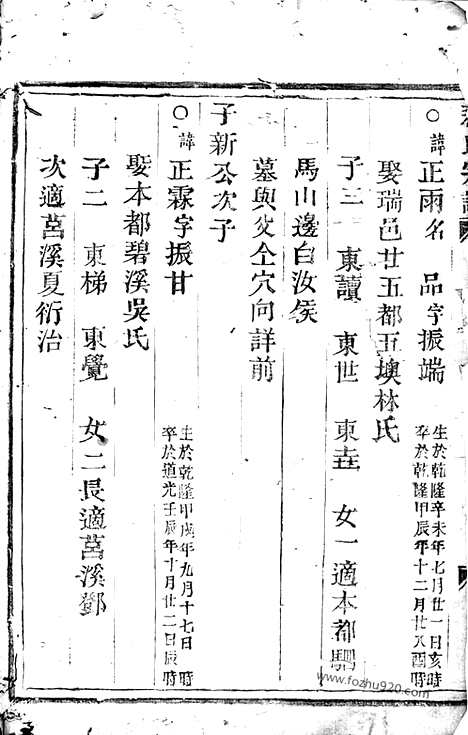 ○諱正雨名 品字振端 生於乾隆辛未年七月廿一日亥時
卒於乾隆甲辰年十二月廿八酉時
娶瑞邑廿五都五墺林氏
子三 東讀 東世 東壵 女一適本都駟
馬山邊白汝侯
墓與父仝穴向詳前
子新公次子
○諱正霖字振甘 生於乾隆甲戌年九月十七日 時
卒於道光壬辰年十月廿二日辰時
娶本都碧溪吳氏
子二 東梯 東覺 女二長適莒溪鄧
次適莒溪夏衍治
www.fozhu920.com